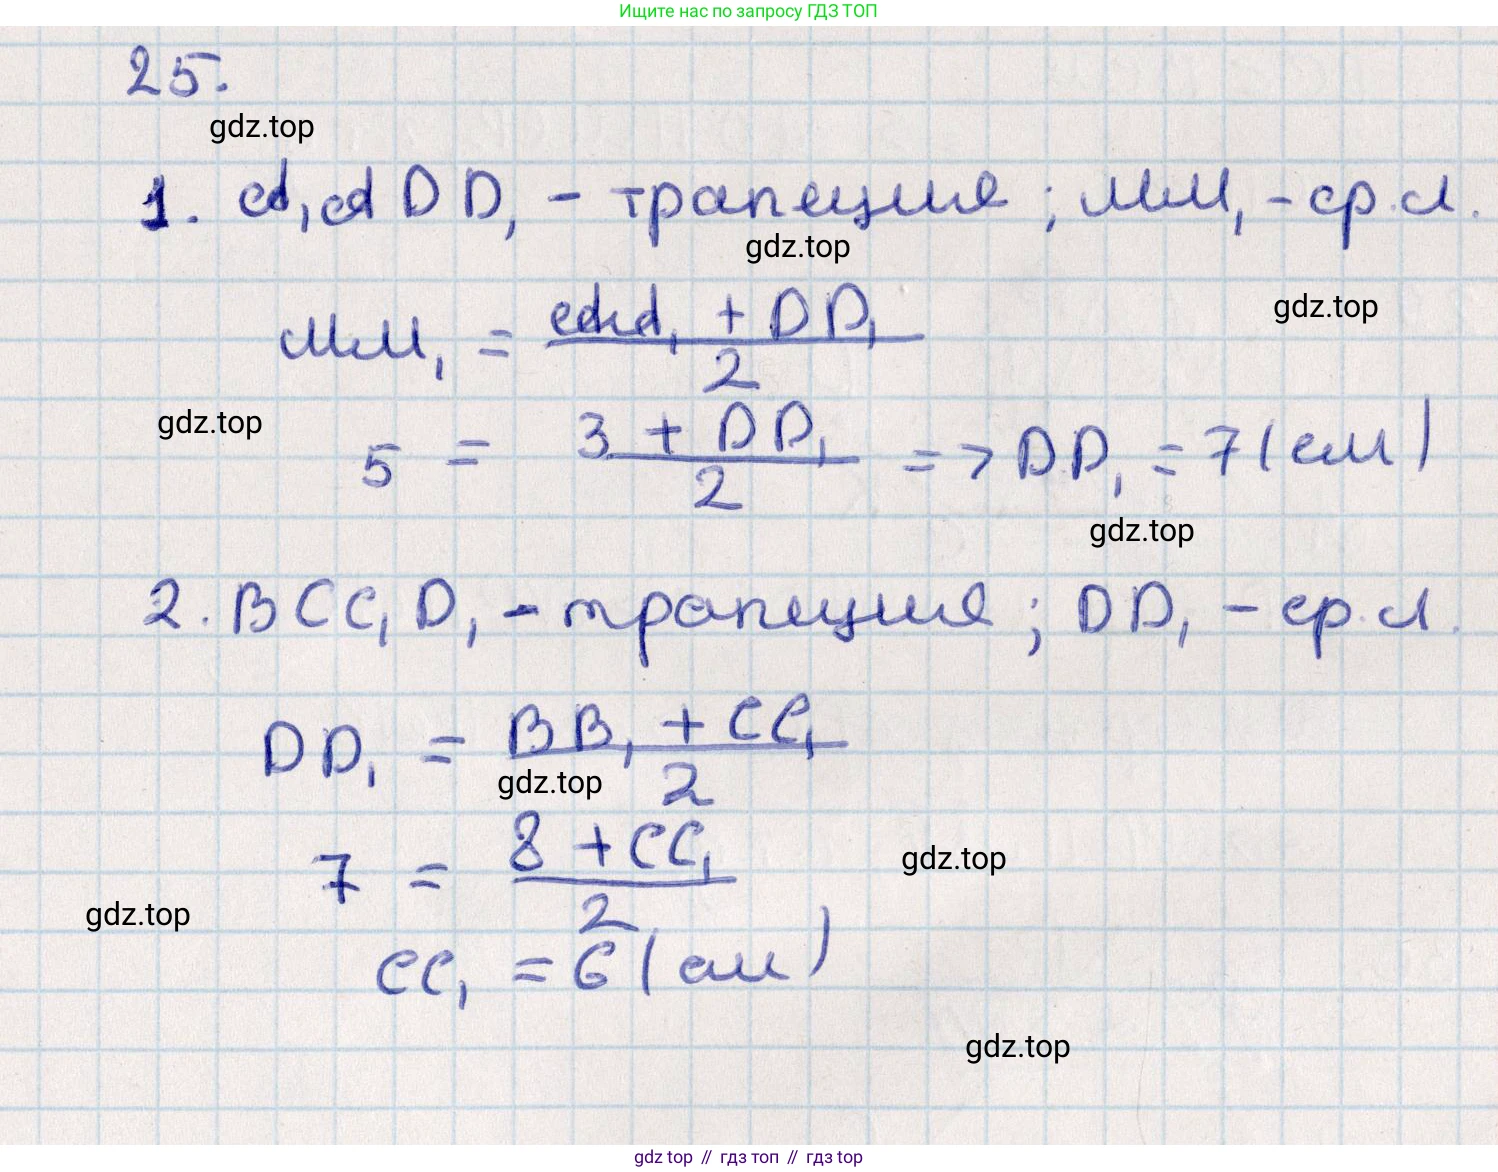 Ищите нас по запросу ГДЗ ТОП
25.
gdz.top
1. A₁ADD₁ - трапеция ; MM₁ - ср. л.
gdz.top
gdz.top
MM₁ = (AA₁ + DD₁)/2
gdz.top
5 = (3 + DD₁)/2 => DD₁ = 7 (см)
gdz.top
2. BCC₁D₁ - трапеция ; DD₁ - ср. л.
DD₁ = (BB₁ + CC₁)/2
gdz.top
7 = (8 + CC₁)/2
gdz.top
gdz.top
CC₁ = 6 (см)
gdz.top
gdz top // гдз топ // гдз top